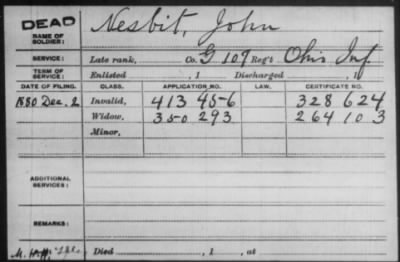 DEAD Nesbit, John
NAME OF SOLDIER:
SERVICE: Late rank, Co. G 109 Reg't Ohio Inf.
TERM OF SERVICE: Enlisted , 1 Discharged , 1
DATE OF FILING. CLASS. APPLICATION NO. LAW. CERTIFICATE NO.
1880 Dec. 2 Invalid, 413 456 328 624
Widow, 350 293 264 103
Minor,
ADDITIONAL SERVICES:
REMARKS:
Died , 1 , at